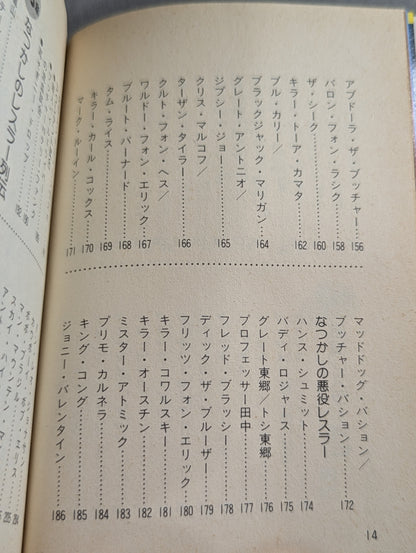 アブドーラ・ザ・ブッチャー……156
バロン・フォン・ラシク……158
ザ・シーク……160
キラー・トーア・カマタ……162
ブル・カリー／
ブラックジャック・マリガン……164
グレート・アントニオ／
ジプシー・ジョー……165
クリス・マルコフ／
ターザン・タイラー……166
クルト・フォン・ヘス／
ワルドー・フォン・エリック……167
ブルート・バーナード……168
タム・ライス……169
キラー・カール・コックス……170
マーク・ルーイン……171
マッドドッグ・バション／
ブッチャー・バション……172
なつかしの悪役レスラー
ハンス・シュミット……174
バディ・ロジャース……175
グレート東郷、トシ東郷……176
プロフェッサー田中……177
フレッド・ブラッシー……178
ディック・ザ・ブルーザー……179
フリッツ・フォン・エリック……180
キラー・コワルスキー……181
キラー・オースチン……182
ミスター・アトミック……183
プリモ・カルネラ……184
キング・コング……185
ジョニー・バレンタイン……186
14